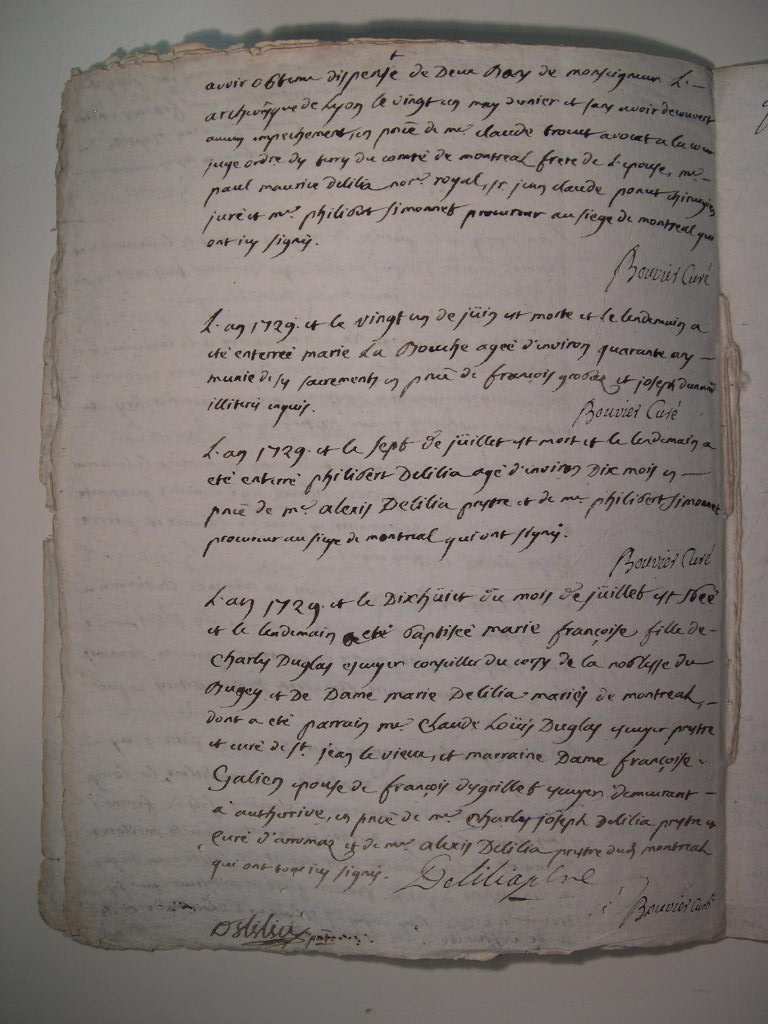 avoir obtenu dispense de Deux Bans de monseigneur L.-
archevêque de Lyon le vingt un may dernier et sans avoir decouvert
aucun empechement, en pnce de mre claude trouit avocat a la cour
juge ordre des terres du comté de montreal frere de L'epouse, mre
paul maurice Delilia nore royal, sr jean claude ponut chirurgien
juré et mre philibert simonnet procureur au siege de montreal qui
ont icy signés.
Bouvier Curé
L'an 1729. et le vingt un de jüin est morte et le lendemain a
eté enterreé marie La Bouche ageé d'environ quarante ans
munie de ses sacrements en pnce de françois et joseph
illiterés enquis.
Bouvier Curé
L'an 1729. et le sept de jüillet est mort et le lendemain a
eté enterré philibert Delilia agé d'environ Dix mois en
pnce de mre alexis Delilia prestre et de mre philibert simonnet
procureur au siege de montreal qui ont signé.
Bouvier Curé
L'an 1729. et le Dixhüict du mois de jüillet est neé
et le lendemain a eté baptiseé marie françoise fille de
Charles Duglas escuyer conseiller du corps de la noblesse du
Bugey et De Dame marie Delilia mariés de montreal,
dont a eté parrain mre Claude Loüis Duglas escuyer prestre
et curé de st. jean le vieux, et marraine Dame françoise
Galien epouse de françois degrillet escuyer demeurant
a autherrive, en pnce de mre Charles joseph Delilia prestre et
Curé d'arromas et de mre alexis Delilia prestre dud. montreal
qui ont tous icy signés. Delilia
Bouvier Curé
Delilia